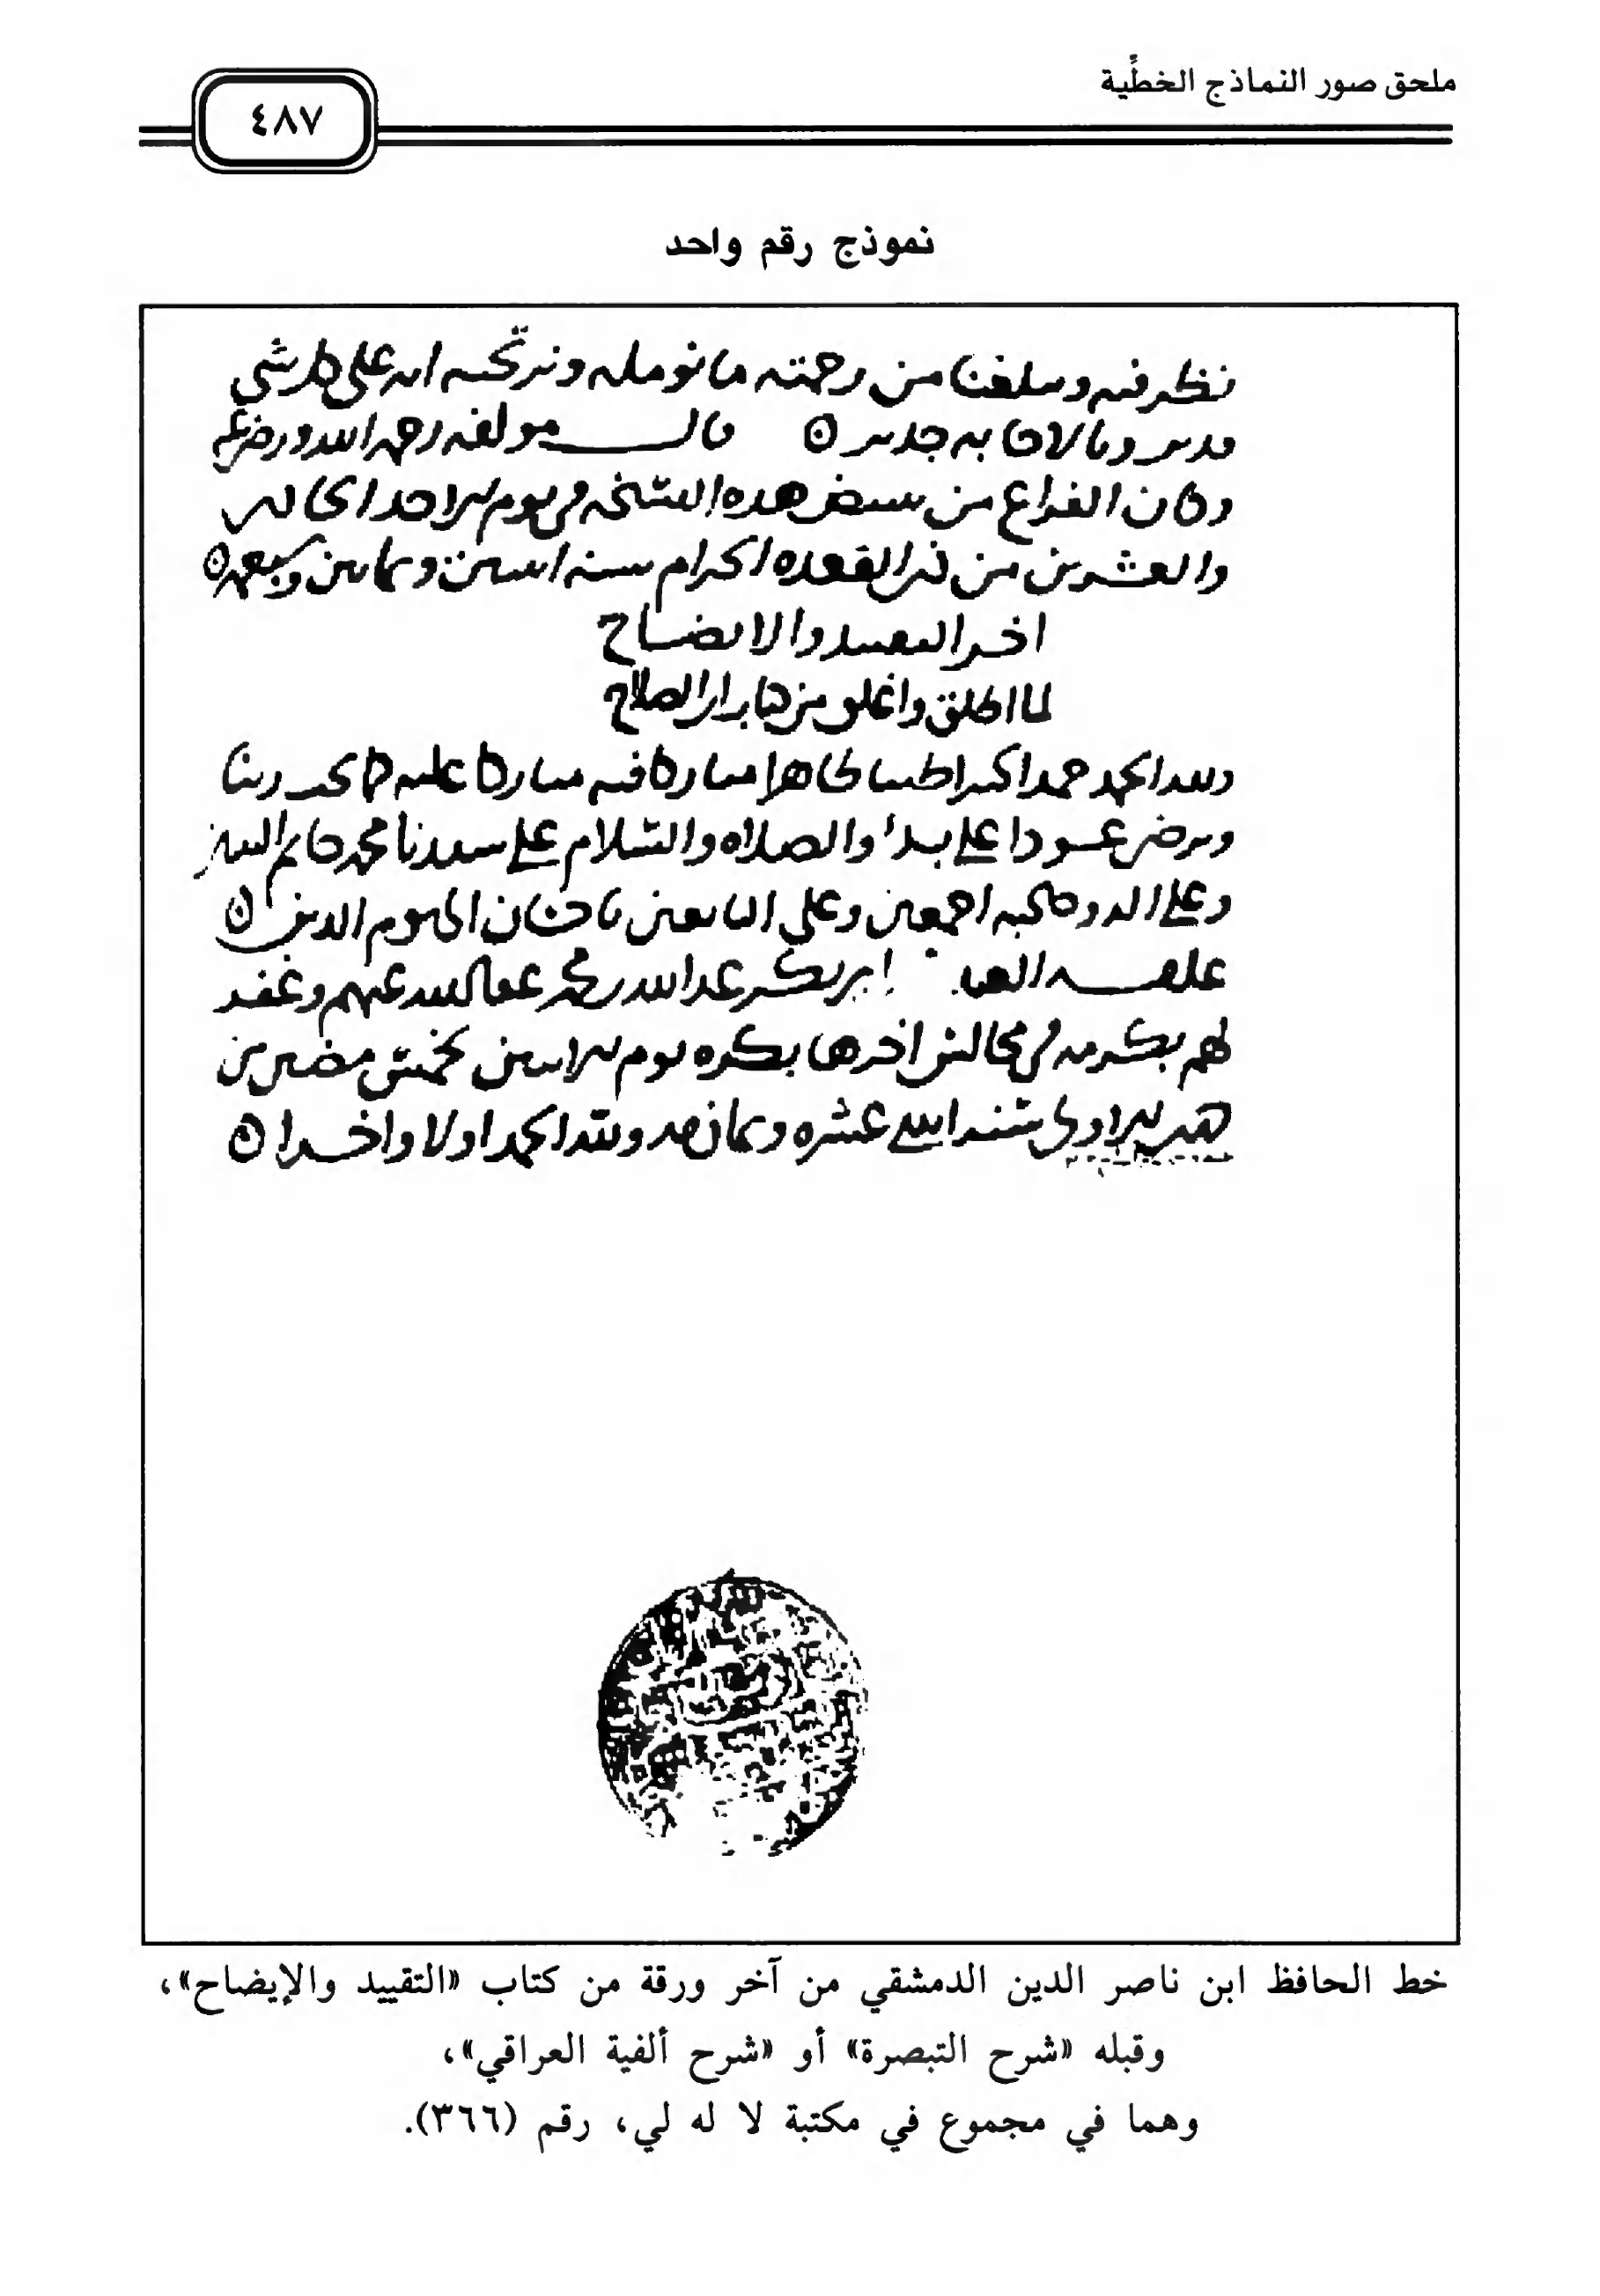 ملحق صور النماذج الخطِّية
٤٨٧
نموذج رقم واحد
نظر فيه ويبلغنا من رحمته ما نومله ونرتجيه انه على كل شي
قدير وبالاجابة جدير قال مولفه رحمه الله ورضي عنه
وكان الفراغ من تبييض هذه النسخه في يوم الاحد الحادي
والعشرين من ذي القعده الحرام سنة اثنين وثمانين وسبعمه
اخر التقييد والايضاح
لما اطلق واغلق من كتاب ابن الصلاح
ولله الحمد حمدا كثيرا طيبا طاهرا مباركا فيه مباركا عليه كما يحب ربنا
ويرضى عودا على بدء والصلاه والسلام على سيدنا محمد خاتم النبيين
وعلى اله وصحبه اجمعين وعلى التابعين باحسان الى يوم الدين
علقه العبد ابن ابي بكر عبد الله بن محمد عفا الله عنهم وغفر
لهم بكرمه في مجالس اخرها بكره يوم الاثنين لخمس مضين من
شهر ربيع الاول سنة اربع عشره وثمانمئه ولله الحمد اولا واخرا
خط الحافظ ابن ناصر الدين الدمشقي من آخر ورقة من كتاب «التقييد والإيضاح»،
وقبله «شرح التبصرة» أو «شرح ألفية العراقي»،
وهما في مجموع في مكتبة لا له لي، رقم (٣٦٦).